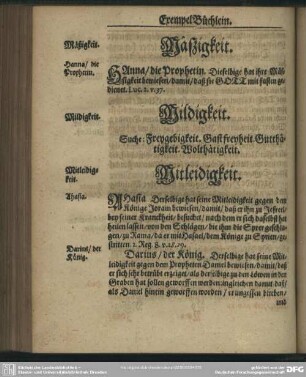 Exempel Büchlein.
Mäßigkeit.
Mäßigkeit.
Hanna/ die
Prophetin.
HAnna/ die Prophetin. Dieselbige hat ihre Mäs-
sigkeit bewiesen/ damit/ daß sie GOTT mit fasten ge-
dienet. Luc. 2. v. 37.
Mildigkeit.
Mildigkeit.
Suche: Freygebigkeit. Gastfreyheit. Gutthä-
tigkeit. Wolthätigkeit.
Mitleidig-
keit.
Mitleidigkeit.
Ahasia.
AHasia. Derselbige hat seine Mitleidigkeit gegen dem
Könige Joram bewiesen/ damit/ daß er ihn zu Jesreel/
bey seiner Kranckheit/ besucht/ nach dem er sich daselbst hat
heilen lassen/ von den Schlägen/ die ihm die Syrer geschla-
gen/ zu Rama/ da er mit Hasael/ dem Könige zu Syrien/ ge-
stritten. 2. Reg. 8. v. 28. 29.
Darius/ der
König.
Darius/ der König. Derselbige hat seine Mit-
leidigkeit gegen dem Propheten Daniel bewiesen/ damit/ daß
er sich sehr betrübt erzeiget/ als derselbige zu den Löwen in den
Graben hat sollen geworffen werden/ ingleichen damit/ daß/
als Daniel hinein geworffen worden/ er ungessen blieben/
und